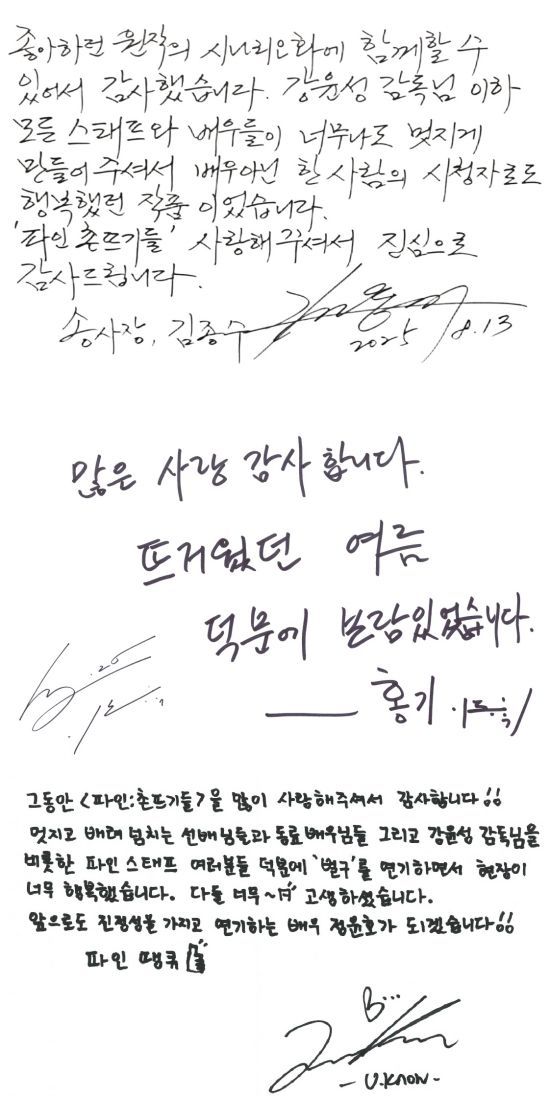 좋아하던 원작의 시나리오화에 함께할 수
있어서 감사했습니다. 강윤성 감독님 이하
모든 스태프와 배우들이 너무나도 멋지게
만들어 주셔서 배우아닌 한 사람의 시청자로도
행복했던 작품 이었습니다.
'파인 촌뜨기들' 사랑해주셔서 진심으로
감사드립니다.
송사장, 김종수
2025 / 8.13
많은 사랑 감사합니다.
뜨거웠던 여름
덕분에 보람있었습니다.
홍기
그동안 <파인:촌뜨기들>을 많이 사랑해주셔서 감사합니다!!
멋지고 배려 넘치는 선배님들과 동료배우님들 그리고 강윤성 감독님을
비롯한 파인 스태프 여러분들 덕분에 '벌구'를 연기하면서 현장이
너무 행복했습니다. 다들 너무~ 고생하셨습니다.
앞으로도 진정성을 가지고 연기하는 배우 정윤호가 되겠습니다!!
파인 땡큐
- U.KNOW -